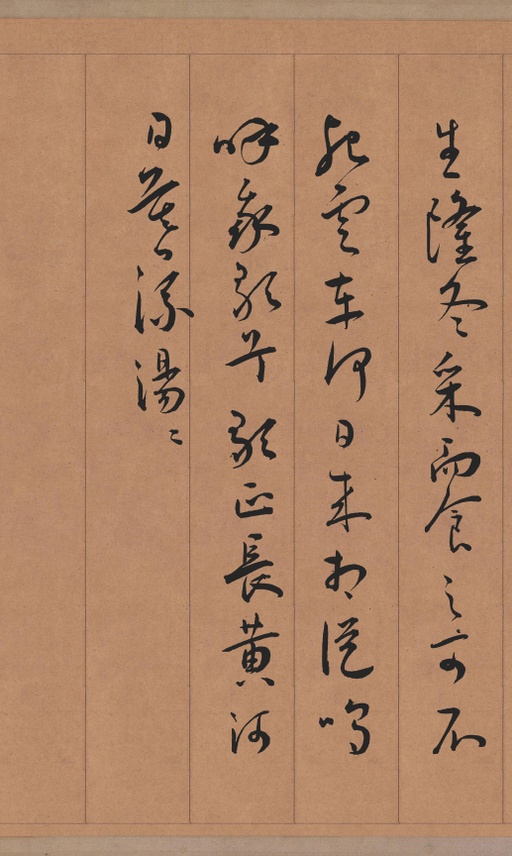 生隆冬采而食之可不
死雲車何日來相從嗚
呼我歌兮歌正長黃河
日暮流湯〻